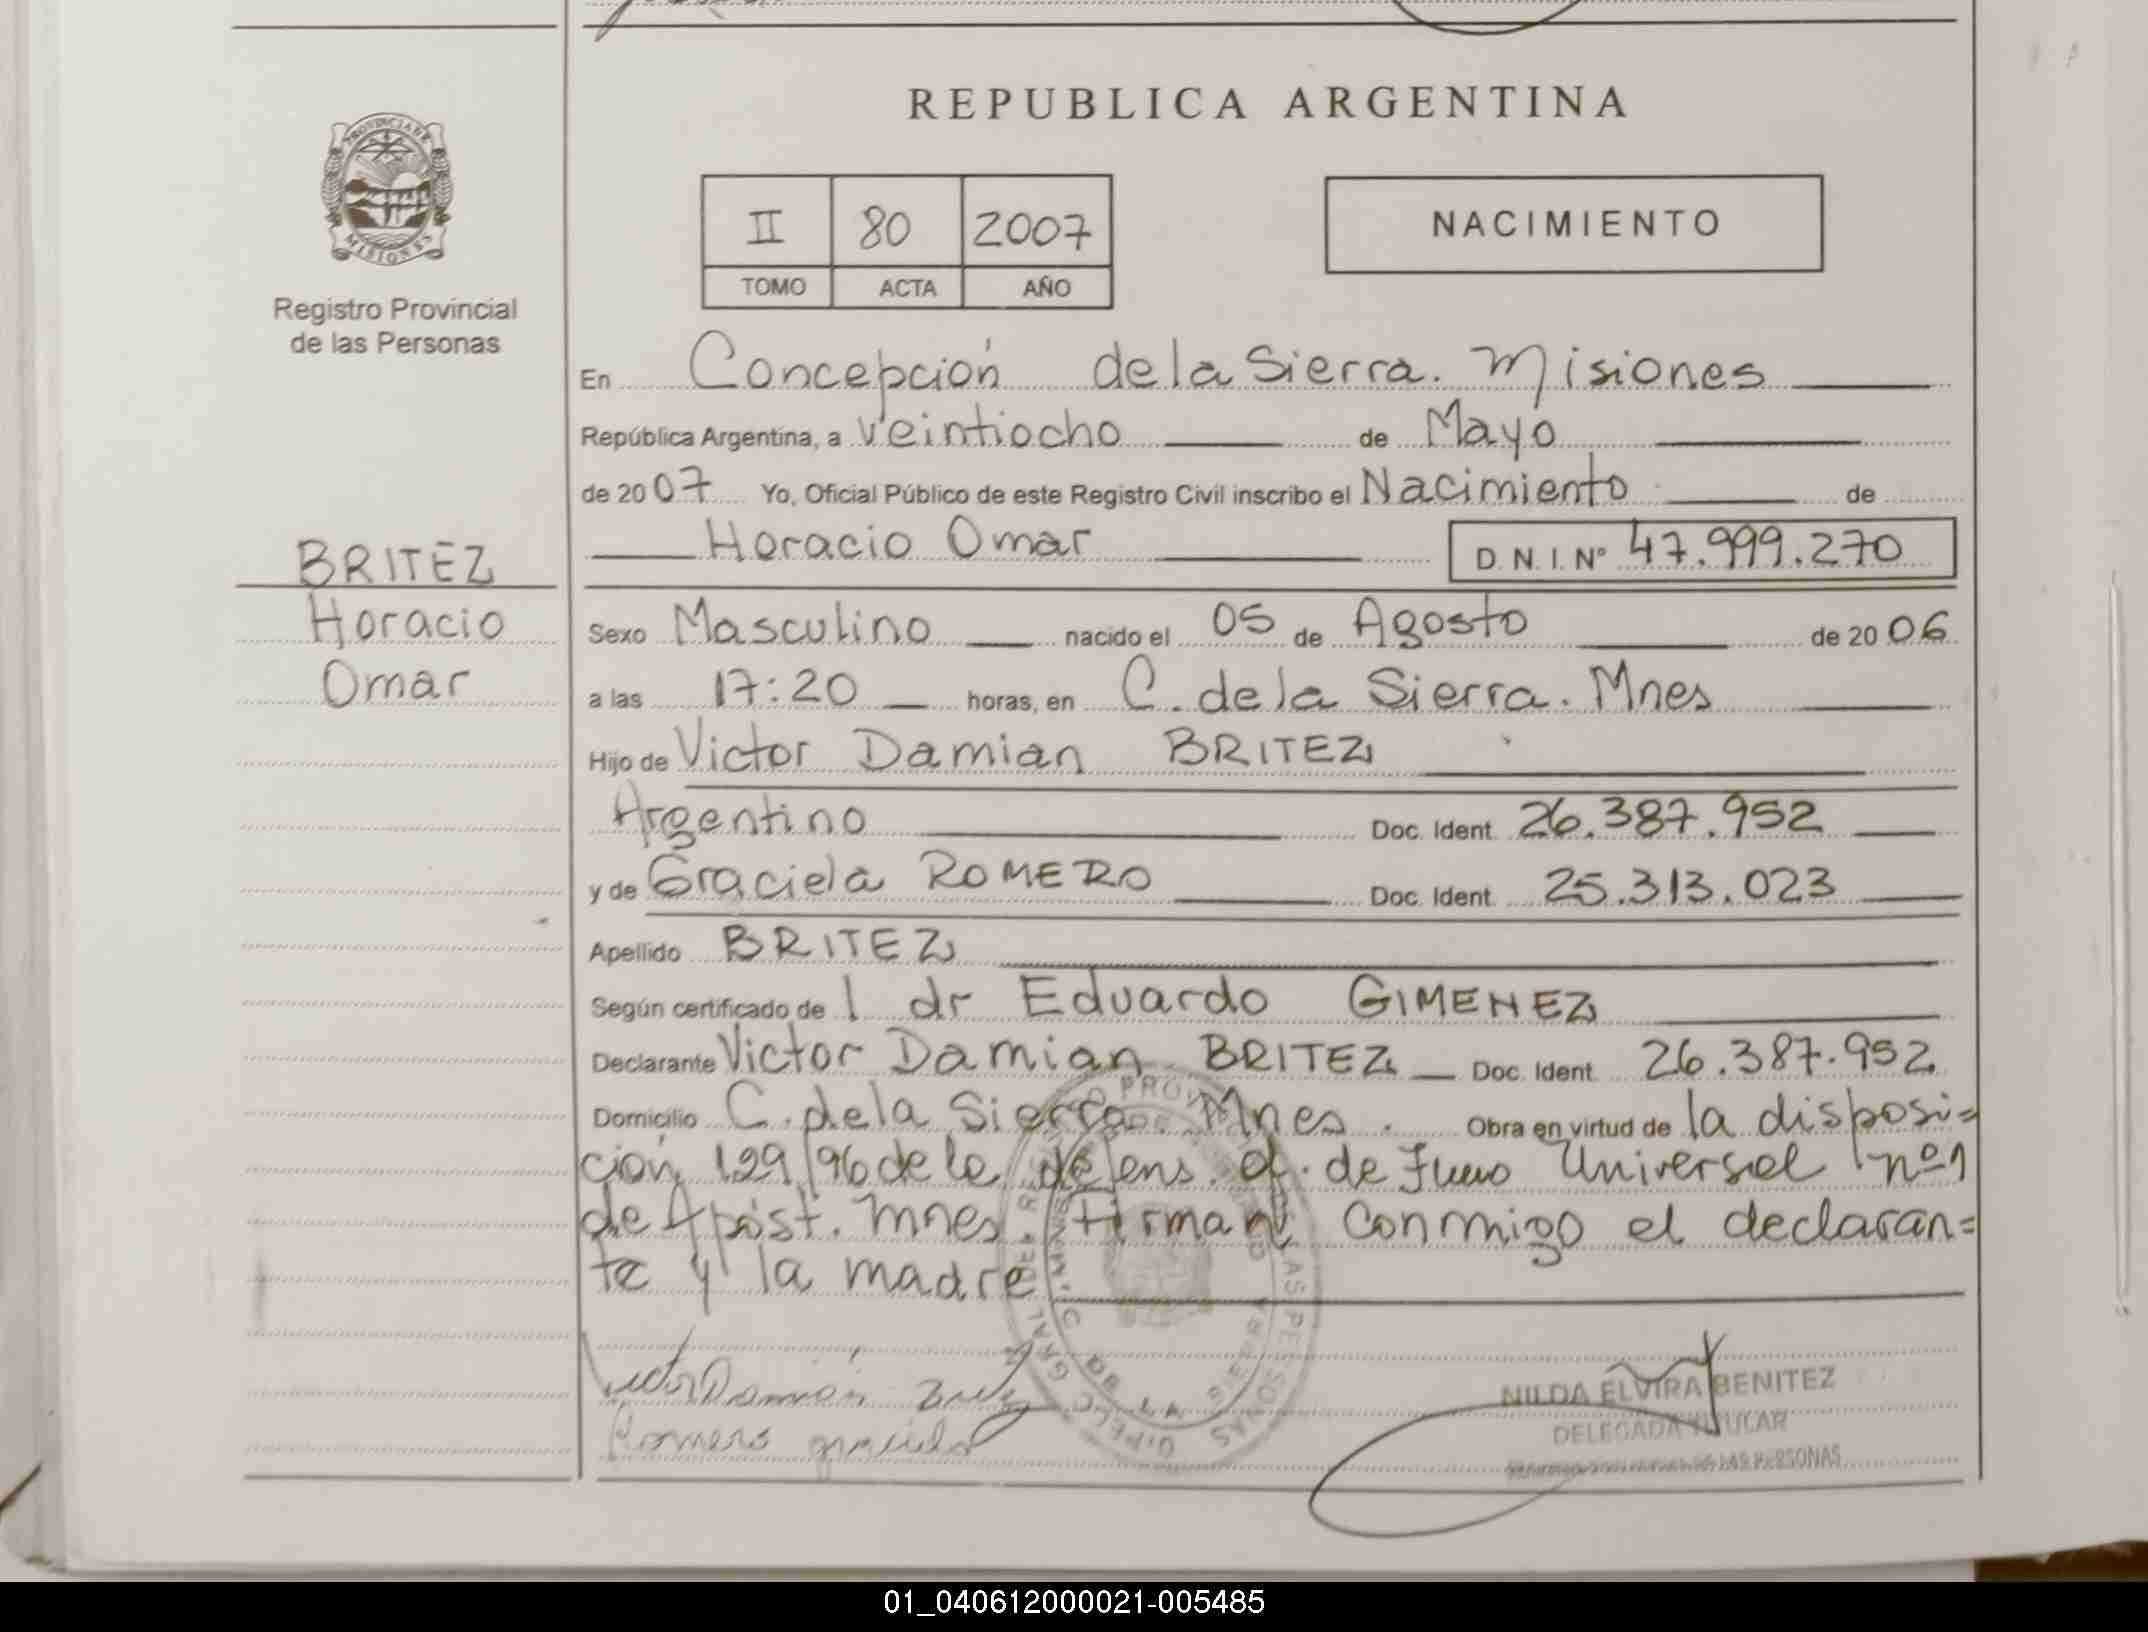 REPUBLICA ARGENTINA
PROVINCIA DE
MISIONES
Registro Provincial
de las Personas
II 80 2007
TOMO ACTA AÑO
NACIMIENTO
En Concepción de la Sierra. Misiones
República Argentina, a veintiocho de Mayo
de 2007 Yo, Oficial Público de este Registro Civil inscribo el Nacimiento de
Horacio Omar D.N.I. Nº 47.999.270
BRITEZ
Horacio
Omar
Sexo Masculino nacido el 05 de Agosto de 2006
a las 17:20 horas, en C. de la Sierra. Mnes
Hijo de Victor Damian BRITEZ
Argentino Doc. Ident. 26.387.952
y de Graciela ROMERO Doc. Ident. 25.313.023
Apellido BRITEZ
Según certificado de l dr Eduardo GIMENEZ
Declarante Victor Damian BRITEZ Doc. Ident. 26.387.952
Domicilio C. de la Sierra. Mnes. Obra en virtud de la disposi=
ción 129/96 de la defens. of. de Fuero Universal nº1
de Apóst. Mnes Firman conmigo el declaran=
te y la madre
Victor Damián Britez
Romero graciela
NILDA ELVIRA BENITEZ
DELEGADA TITULAR
DE LAS PERSONAS
01_040612000021-005485